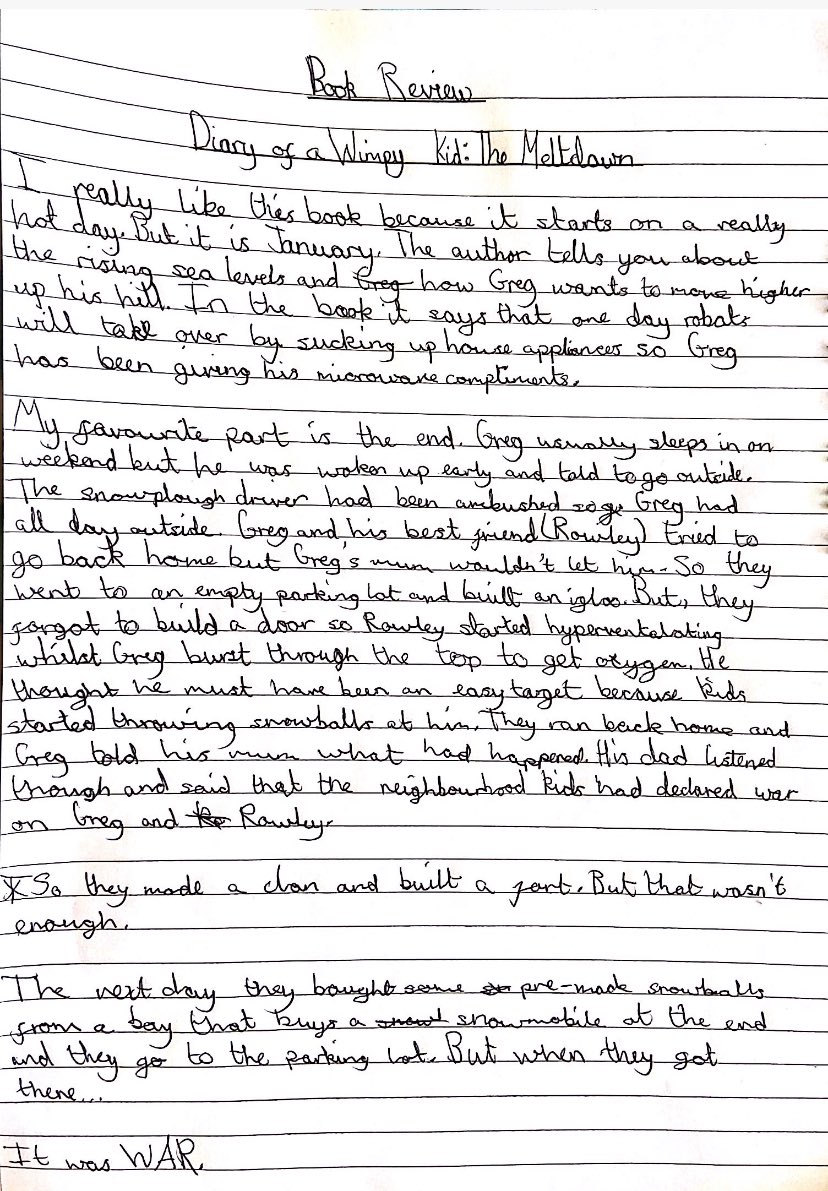 Book Review
Diary of a Wimpy Kid: The Meltdown
I really like this book because it starts on a really
hot day. But it is January. The author tells you about
the rising sea levels and Greg how Greg wants to move higher
up his hill. In the book it says that one day robots
will take over by sucking up house appliances so Greg
has been giving his microwave compliments.
My favourite part is the end. Greg usually sleeps in on
weekend but he was woken up early and told to go outside.
The snowplough driver had been ambushed so Greg had
all day outside. Greg and his best friend (Rowley) tried to
go back home but Greg's mum wouldn't let him. So they
went to an empty parking lot and built an igloo. But, they
forgot to build a door so Rowley started hyperventalating
whilst Greg burst through the top to get oxygen. He
thought he must have been an easy target because kids
started throwing snowballs at him. They ran back home and
Greg told his mum what had happened. His dad listened
though and said that the neighbourhood kids had declared war
on Greg and Rowley.
*So they made a clan and built a fort. But that wasn't
enough.
The next day they bought some pre-made snowballs
from a boy that buys a snowmobile at the end
and they go to the parking lot. But when they got
there...
It was WAR.